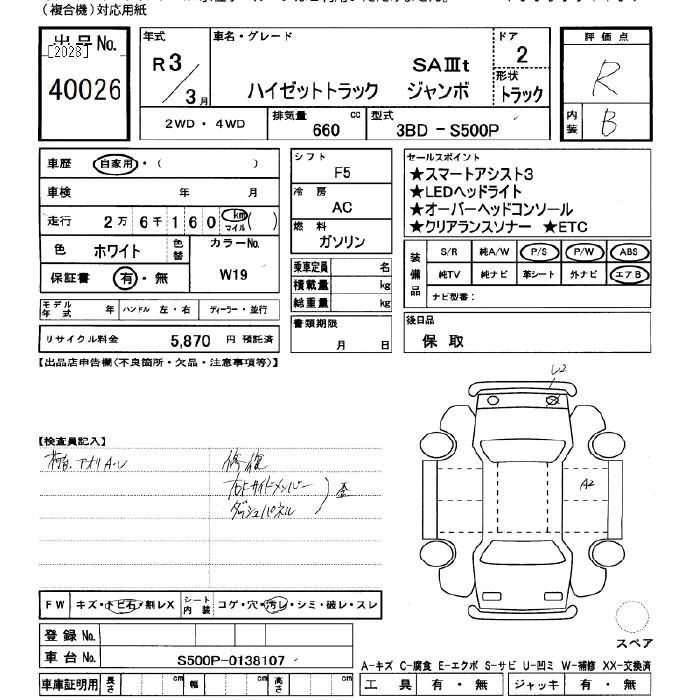 (複合機)対応用紙
出品No.
[2028]
40026
年式
R3/3月
車名・グレード
SAⅢt
ハイゼットトラック ジャンボ
ドア
2
形状
トラック
評価点
R
内装
B
2WD・4WD
排気量
660
cc
型式
3BD-S500P
車歴 自家用・( )
車検 年 月
走行 2万6千160 km マイル( )
色 ホワイト 色替
カラーNo.
W19
保証書 有・無
モデル年式 年 ハンドル 左・右 ディーラー・並行
リサイクル料金 5,870 円 預託済
シフト
F5
冷房
AC
燃料
ガソリン
乗車定員 名
積載量 kg
総重量 kg
書類期限
月 日
セールスポイント
★スマートアシスト3
★LEDヘッドライト
★オーバーヘッドコンソール
★クリアランスソナー ★ETC
装備品
S/R 純A/W P/S P/W ABS
純TV 純ナビ 革シート 外ナビ エアB
ナビ型番:
後日品
保 取
【出品店申告欄(不良箇所・欠品・注意事項等)】
【検査員記入】
荷台、アオリA-レ
修復
右Fサイドメンバー
ダッシュパネル
歪
A2
FW キズ・トビ石・割レX シート内装 コゲ・穴・汚レ・シミ・破レ・スレ
登録No.
車台No. S500P-0138107
車庫証明用 長さ cm 幅 cm 高さ cm
スペア
A-キズ C-腐食 E-エクボ S-サビ U-凹ミ W-補修 XX-交換済
工具 有・無 ジャッキ 有・無